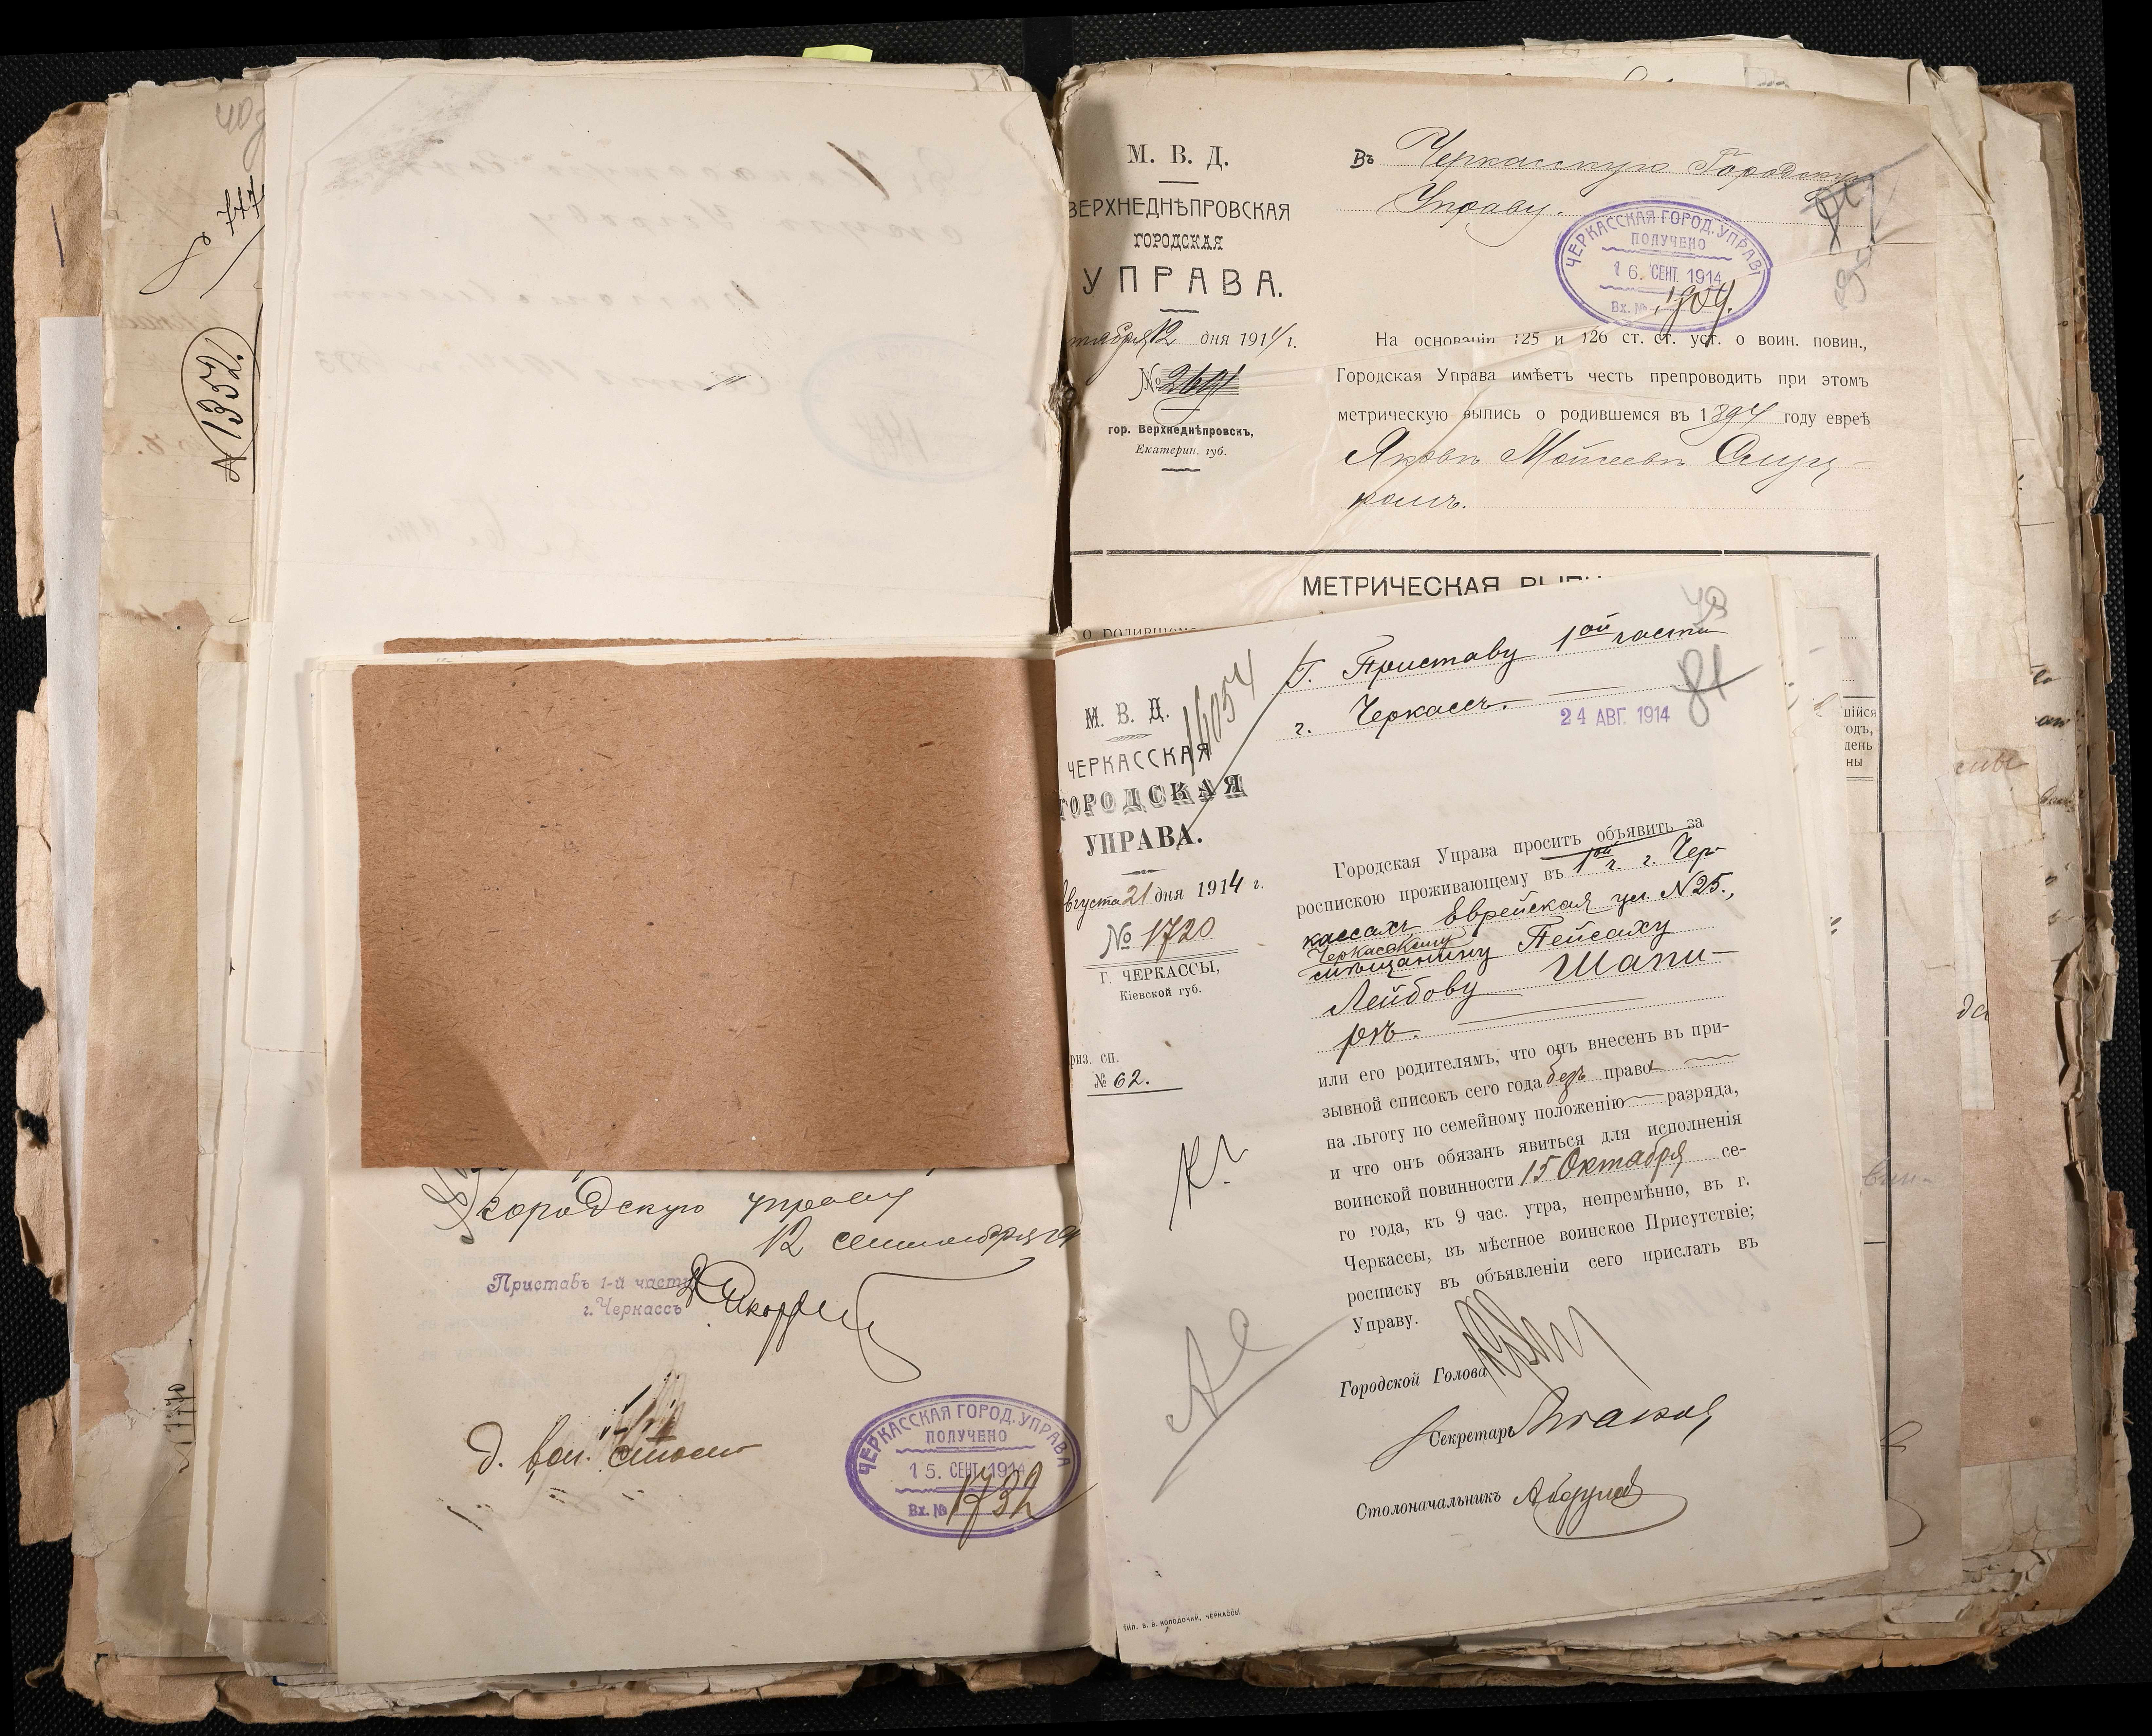 777
1352
М. В. Д.
ВЕРХНЕДНѢПРОВСКАЯ
ГОРОДСКАЯ
УПРАВА.
12 дня 1914 г.
№ 2691
гор. Верхнеднѣпровскъ,
Екатерин. губ.
Въ Черкасскую Городскую
Управу.
ЧЕРКАССКАЯ ГОРОД. УПРАВА
ПОЛУЧЕНО
16. СЕНТ. 1914
Вх. № 1804.
На основаніи 125 и 126 ст. ст. уст. о воин. повин.,
Городская Управа имѣетъ честь препроводить при этомъ
метрическую выпись о родившемся въ 1894 году евреѣ
МЕТРИЧЕСКАЯ
о родившемся
шійся
одъ,
день
ны
16054
Г. Приставу 1ой части
г. Черкассъ.
24 АВГ. 1914
81
М. В. Д.
ЧЕРКАССКАЯ
ГОРОДСКАЯ
УПРАВА.
вгуста 21 дня 1914 г.
№ 1720
Г. ЧЕРКАССЫ,
Кіевской губ.
риз. сп.
№ 62.
Городская Управа проситъ объявить за
роспискою проживающему въ 1ой ч. г. Чер-
кассахъ Еврейская ул. N 25.,
Черкасскому
мѣщанину Пейсаху
Лейбову Шапи-
ръ.
или его родителямъ, что онъ внесенъ въ при-
зывной списокъ сего года безъ права
на льготу по семейному положенію разряда,
и что онъ обязанъ явиться для исполненія
воинской повинности 15 Октября се-
го года, къ 9 час. утра, непремѣнно, въ г.
Черкассы, въ мѣстное воинское Присутствіе;
росписку въ объявленіи сего прислать въ
Управу.
Городской Голова
Секретарь
Столоначальникъ
ТИП. В. В. КОЛОДОЧИЙ, ЧЕРКАССЫ
городскую управу
12 сентября
Приставъ 1-й части
г. Черкассъ
ЧЕРКАССКАЯ ГОРОД. УПРАВА
ПОЛУЧЕНО
15. СЕНТ. 1914
Вх. № 1732